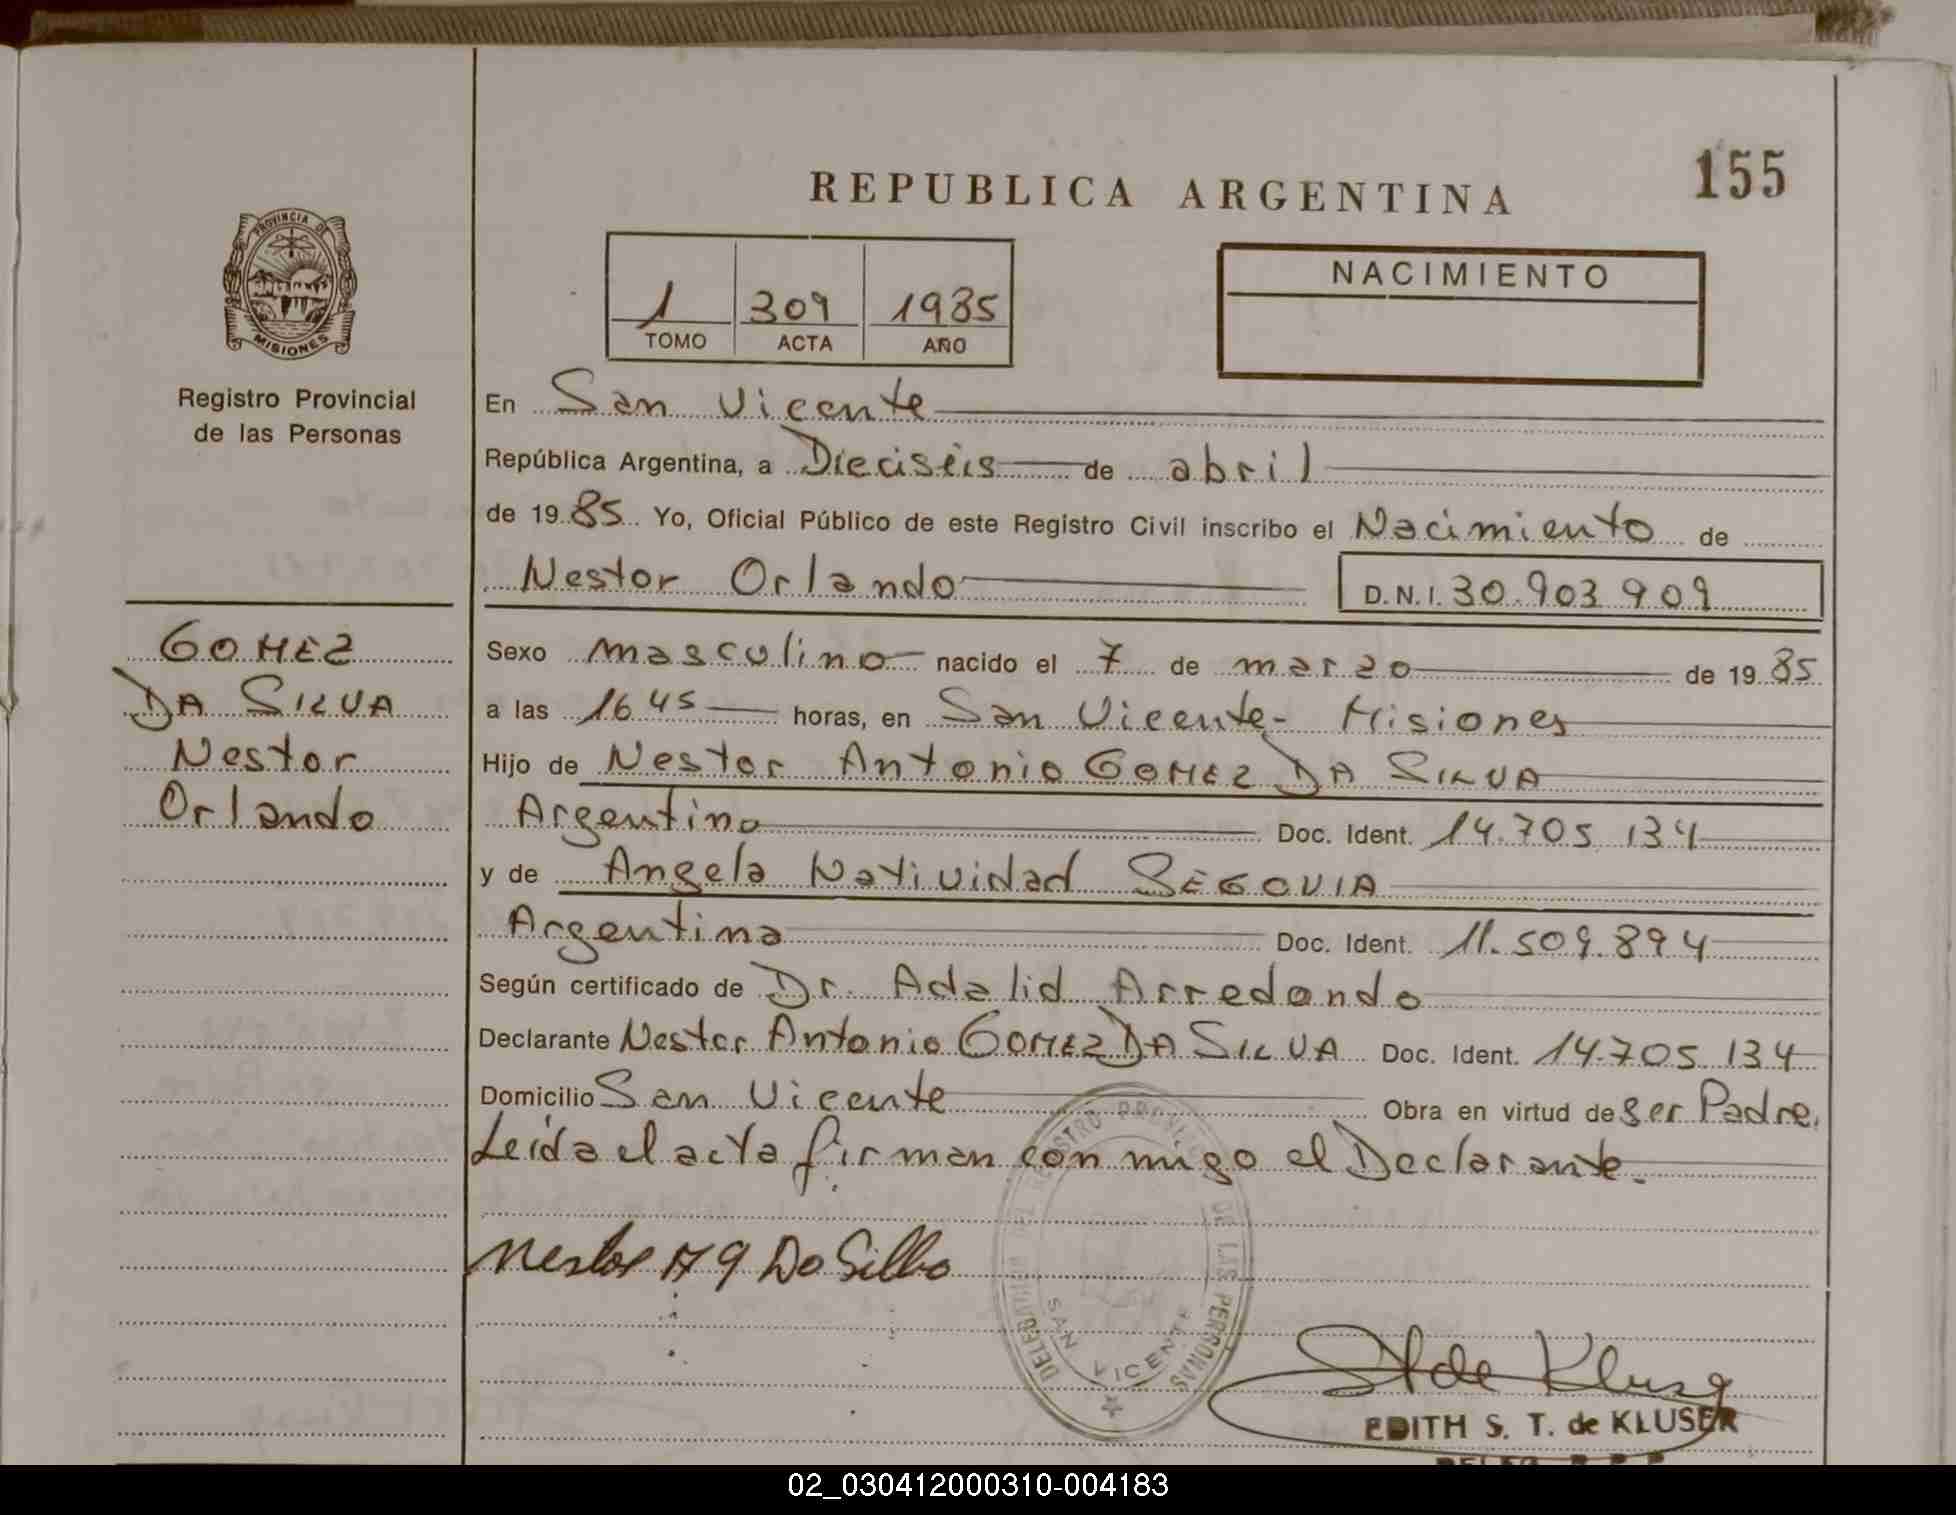 155
REPUBLICA ARGENTINA
PROVINCIA DE
MISIONES
Registro Provincial
de las Personas
1 309 1985
TOMO ACTA AÑO
NACIMIENTO
En San Vicente
República Argentina, a Dieciséis de abril
de 1985 Yo, Oficial Público de este Registro Civil inscribo el Nacimiento de
Nestor Orlando D.N.I. 30.903.909
GOMEZ
DA SILVA
Nestor
Orlando
Sexo masculino nacido el 7 de marzo de 1985
a las 16 45 horas, en San Vicente - Misiones
Hijo de Nestor Antonio GOMEZ DA SILVA
Argentino Doc. Ident. 14.705.134
y de Angela Natividad SEGOVIA
Argentina Doc. Ident. 11.509.894
Según certificado de Dr. Adalid Arredondo
Declarante Nestor Antonio GOMEZ DA SILVA Doc. Ident. 14.705.134
Domicilio San Vicente Obra en virtud de ser Padre,
Leída el acta firman con migo el Declarante.
Nestor A G Da Silba
REGISTRO PROVINCIAL DE LAS PERSONAS
SAN VICENTE
St de Kluser
EDITH S. T. de KLUSER
02_030412000310-004183